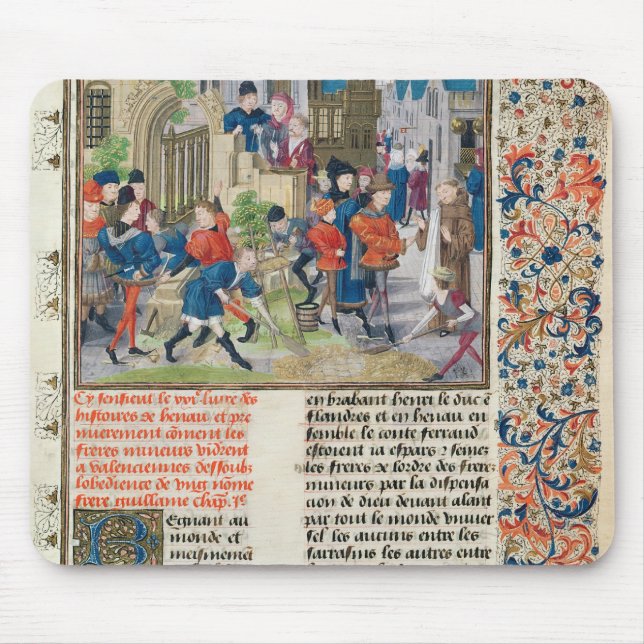 Cy sensieut le xvie livre des
histoires de henau et pre
mierement cōment les
freres mineurs vidrent
a valenciennes dessoubz
lobedience de vng nōme
frere guillame chap. Ie
Regnant au
monde et
meismement
en brabant henri le duc ē
flandres et en henau en
semble le conte ferrand
estoient ia espars z semez
les freres de lordre des freres
mineurs par la dispensa
cion de dieu deuant alant
par tout le monde vniuer
sel les aucuns entre les
sarrasins les autres entre